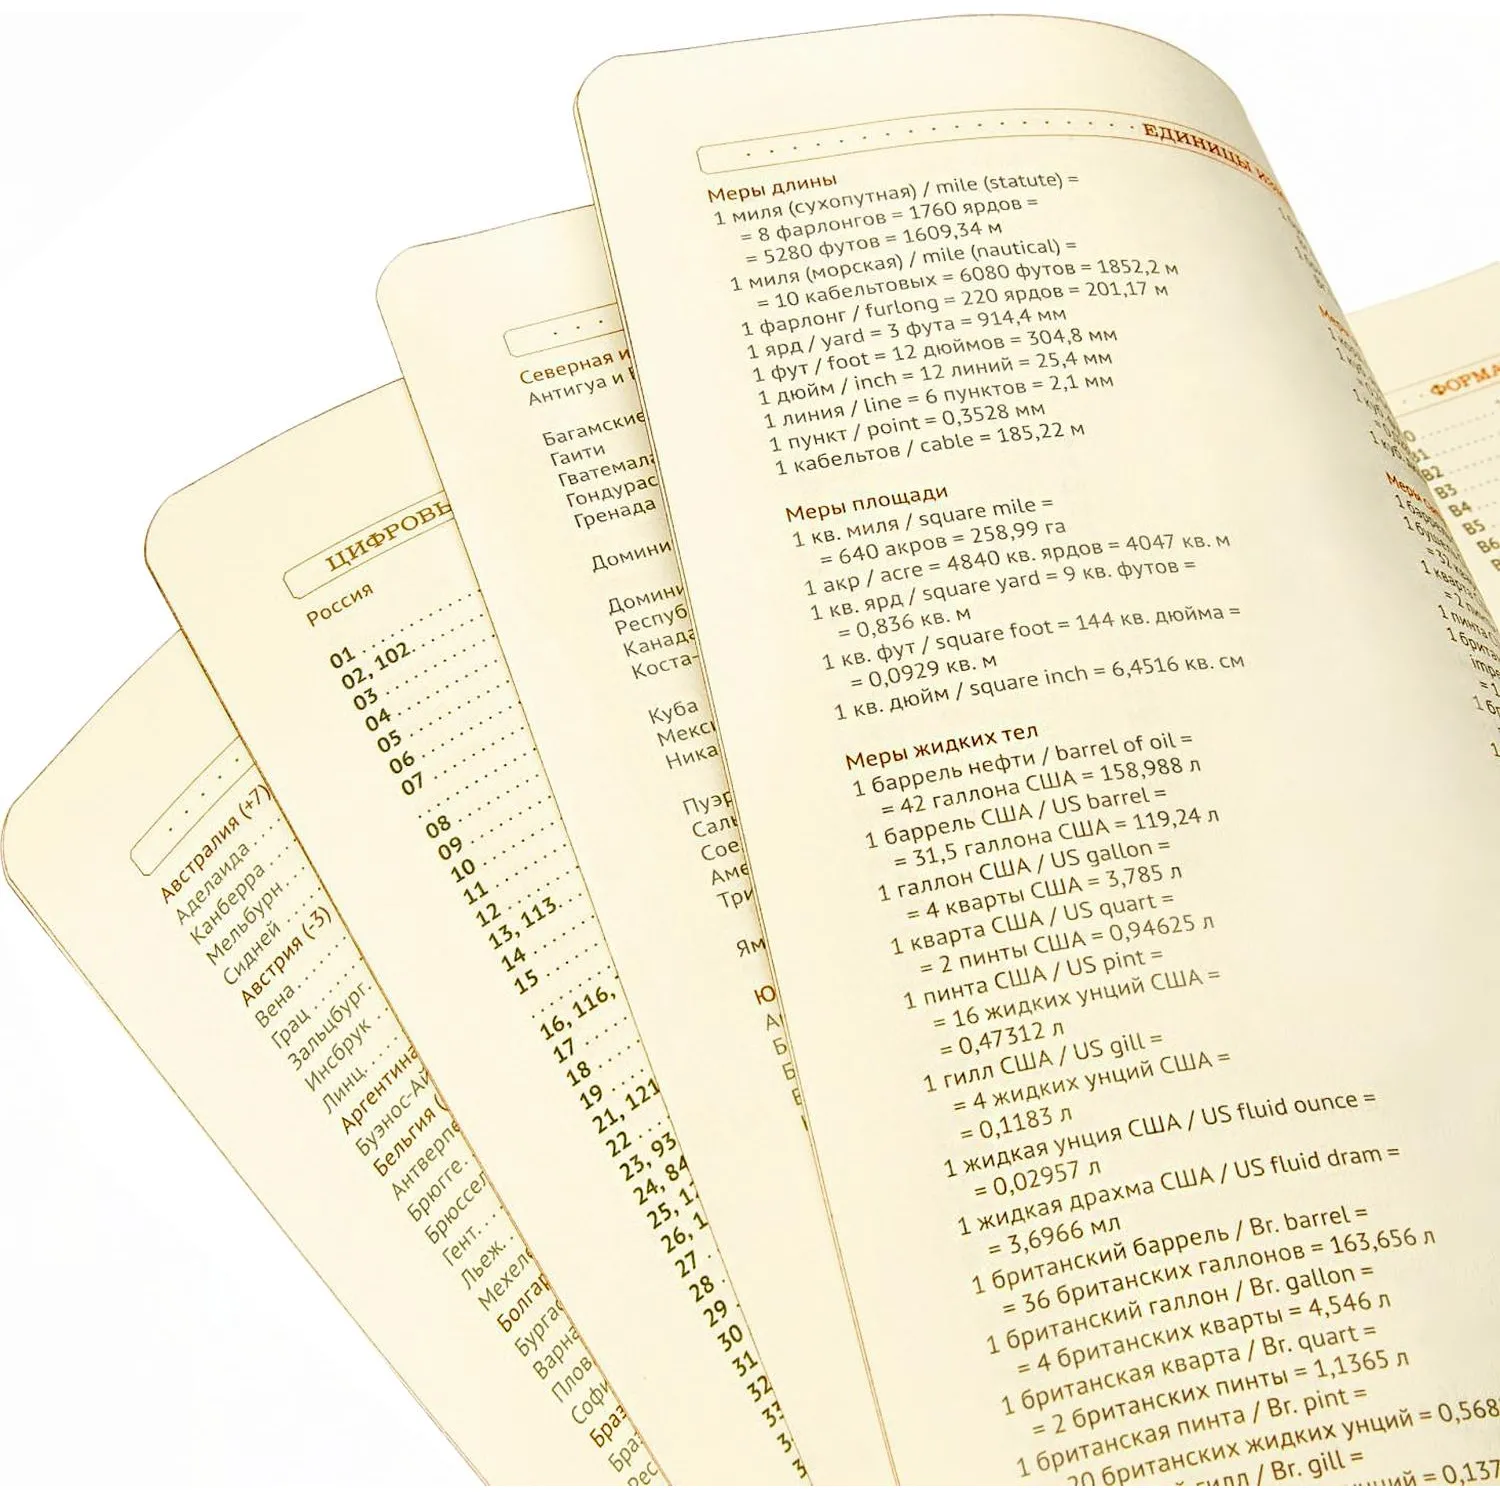 Австралия (+7)
Аделаида
Канберра
Мельбурн
Сидней
Австрия (-3)
Вена
Грац
Зальцбург
Инсбрук
Линц
Аргентина
Буэнос-Ай
Бельгия (
Антверпе
Брюгге
Брюссел
Гент
Льеж
Мехеле
Болгар
Бургас
Варна
Плов
Софи
Браз
Бра
Рес
ЦИФРОВЫ
Россия
01
02, 102
03
04
05
06
07
08
09
10
11
12
13, 113
14
15
16, 116,
17
18
19
21, 121
22
23, 93
24, 84
25, 1
26, 1
27
28
29
30
31
32
Северная и
Антигуа и
Багамские
Гаити
Гватемала
Гондурас
Гренада
Домини
Домини
Респуб
Канада
Коста-
Куба
Мекси
Ника
Пуэр
Саль
Сое
Аме
Три
Ям
Ю
А
Б
Б
ЕДИНИЦЫ
Меры длины
1 миля (сухопутная) / mile (statute) =
= 8 фарлонгов = 1760 ярдов =
= 5280 футов = 1609,34 м
1 миля (морская) / mile (nautical) =
= 10 кабельтовых = 6080 футов = 1852,2 м
1 фарлонг / furlong = 220 ярдов = 201,17 м
1 ярд / yard = 3 фута = 914,4 мм
1 фут / foot = 12 дюймов = 304,8 мм
1 дюйм / inch = 12 линий = 25,4 мм
1 линия / line = 6 пунктов = 2,1 мм
1 пункт / point = 0,3528 мм
1 кабельтов / cable = 185,22 м
Меры площади
1 кв. миля / square mile =
= 640 акров = 258,99 га
1 акр / acre = 4840 кв. ярдов = 4047 кв. м
1 кв. ярд / square yard = 9 кв. футов =
= 0,836 кв. м
1 кв. фут / square foot = 144 кв. дюйма =
= 0,0929 кв. м
1 кв. дюйм / square inch = 6,4516 кв. см
Меры жидких тел
1 баррель нефти / barrel of oil =
= 42 галлона США = 158,988 л
1 баррель США / US barrel =
= 31,5 галлона США = 119,24 л
1 галлон США / US gallon =
= 4 кварты США = 3,785 л
1 кварта США / US quart =
= 2 пинты США = 0,94625 л
1 пинта США / US pint =
= 16 жидких унций США =
= 0,47312 л
1 гилл США / US gill =
= 4 жидких унций США =
= 0,1183 л
1 жидкая унция США / US fluid ounce =
= 0,02957 л
1 жидкая драхма США / US fluid dram =
= 3,6966 мл
1 британский баррель / Br. barrel =
= 36 британских галлонов = 163,656 л
1 британский галлон / Br. gallon =
= 4 британских кварты = 4,546 л
1 британская кварта / Br. quart =
= 2 британских пинты = 1,1365 л
1 британская пинта / Br. pint =
20 британских жидких унций = 0,568
гилл / Br. gill =
= 0,137
ФОРМА
B2
B3
B4
B5
B6